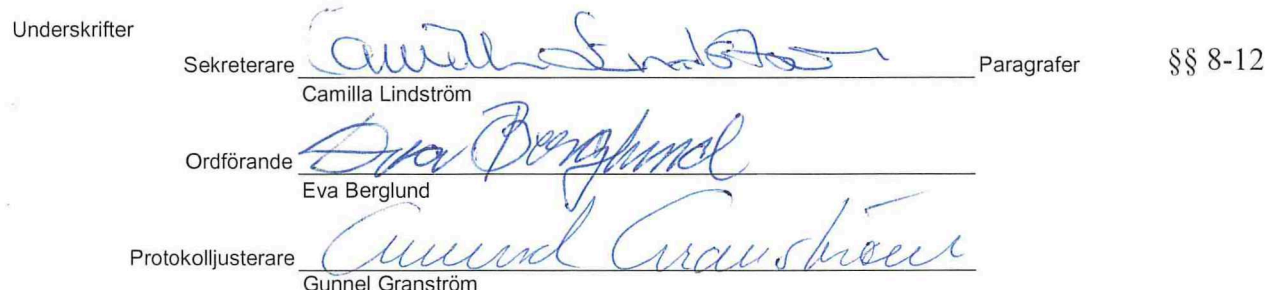 Underskrifter
Sekreterare Camilla Lindström Paragrafer §§ 8-12
Camilla Lindström
Ordförande Eva Berglund
Eva Berglund
Protokolljusterare Gunnel Granström
Gunnel Granström